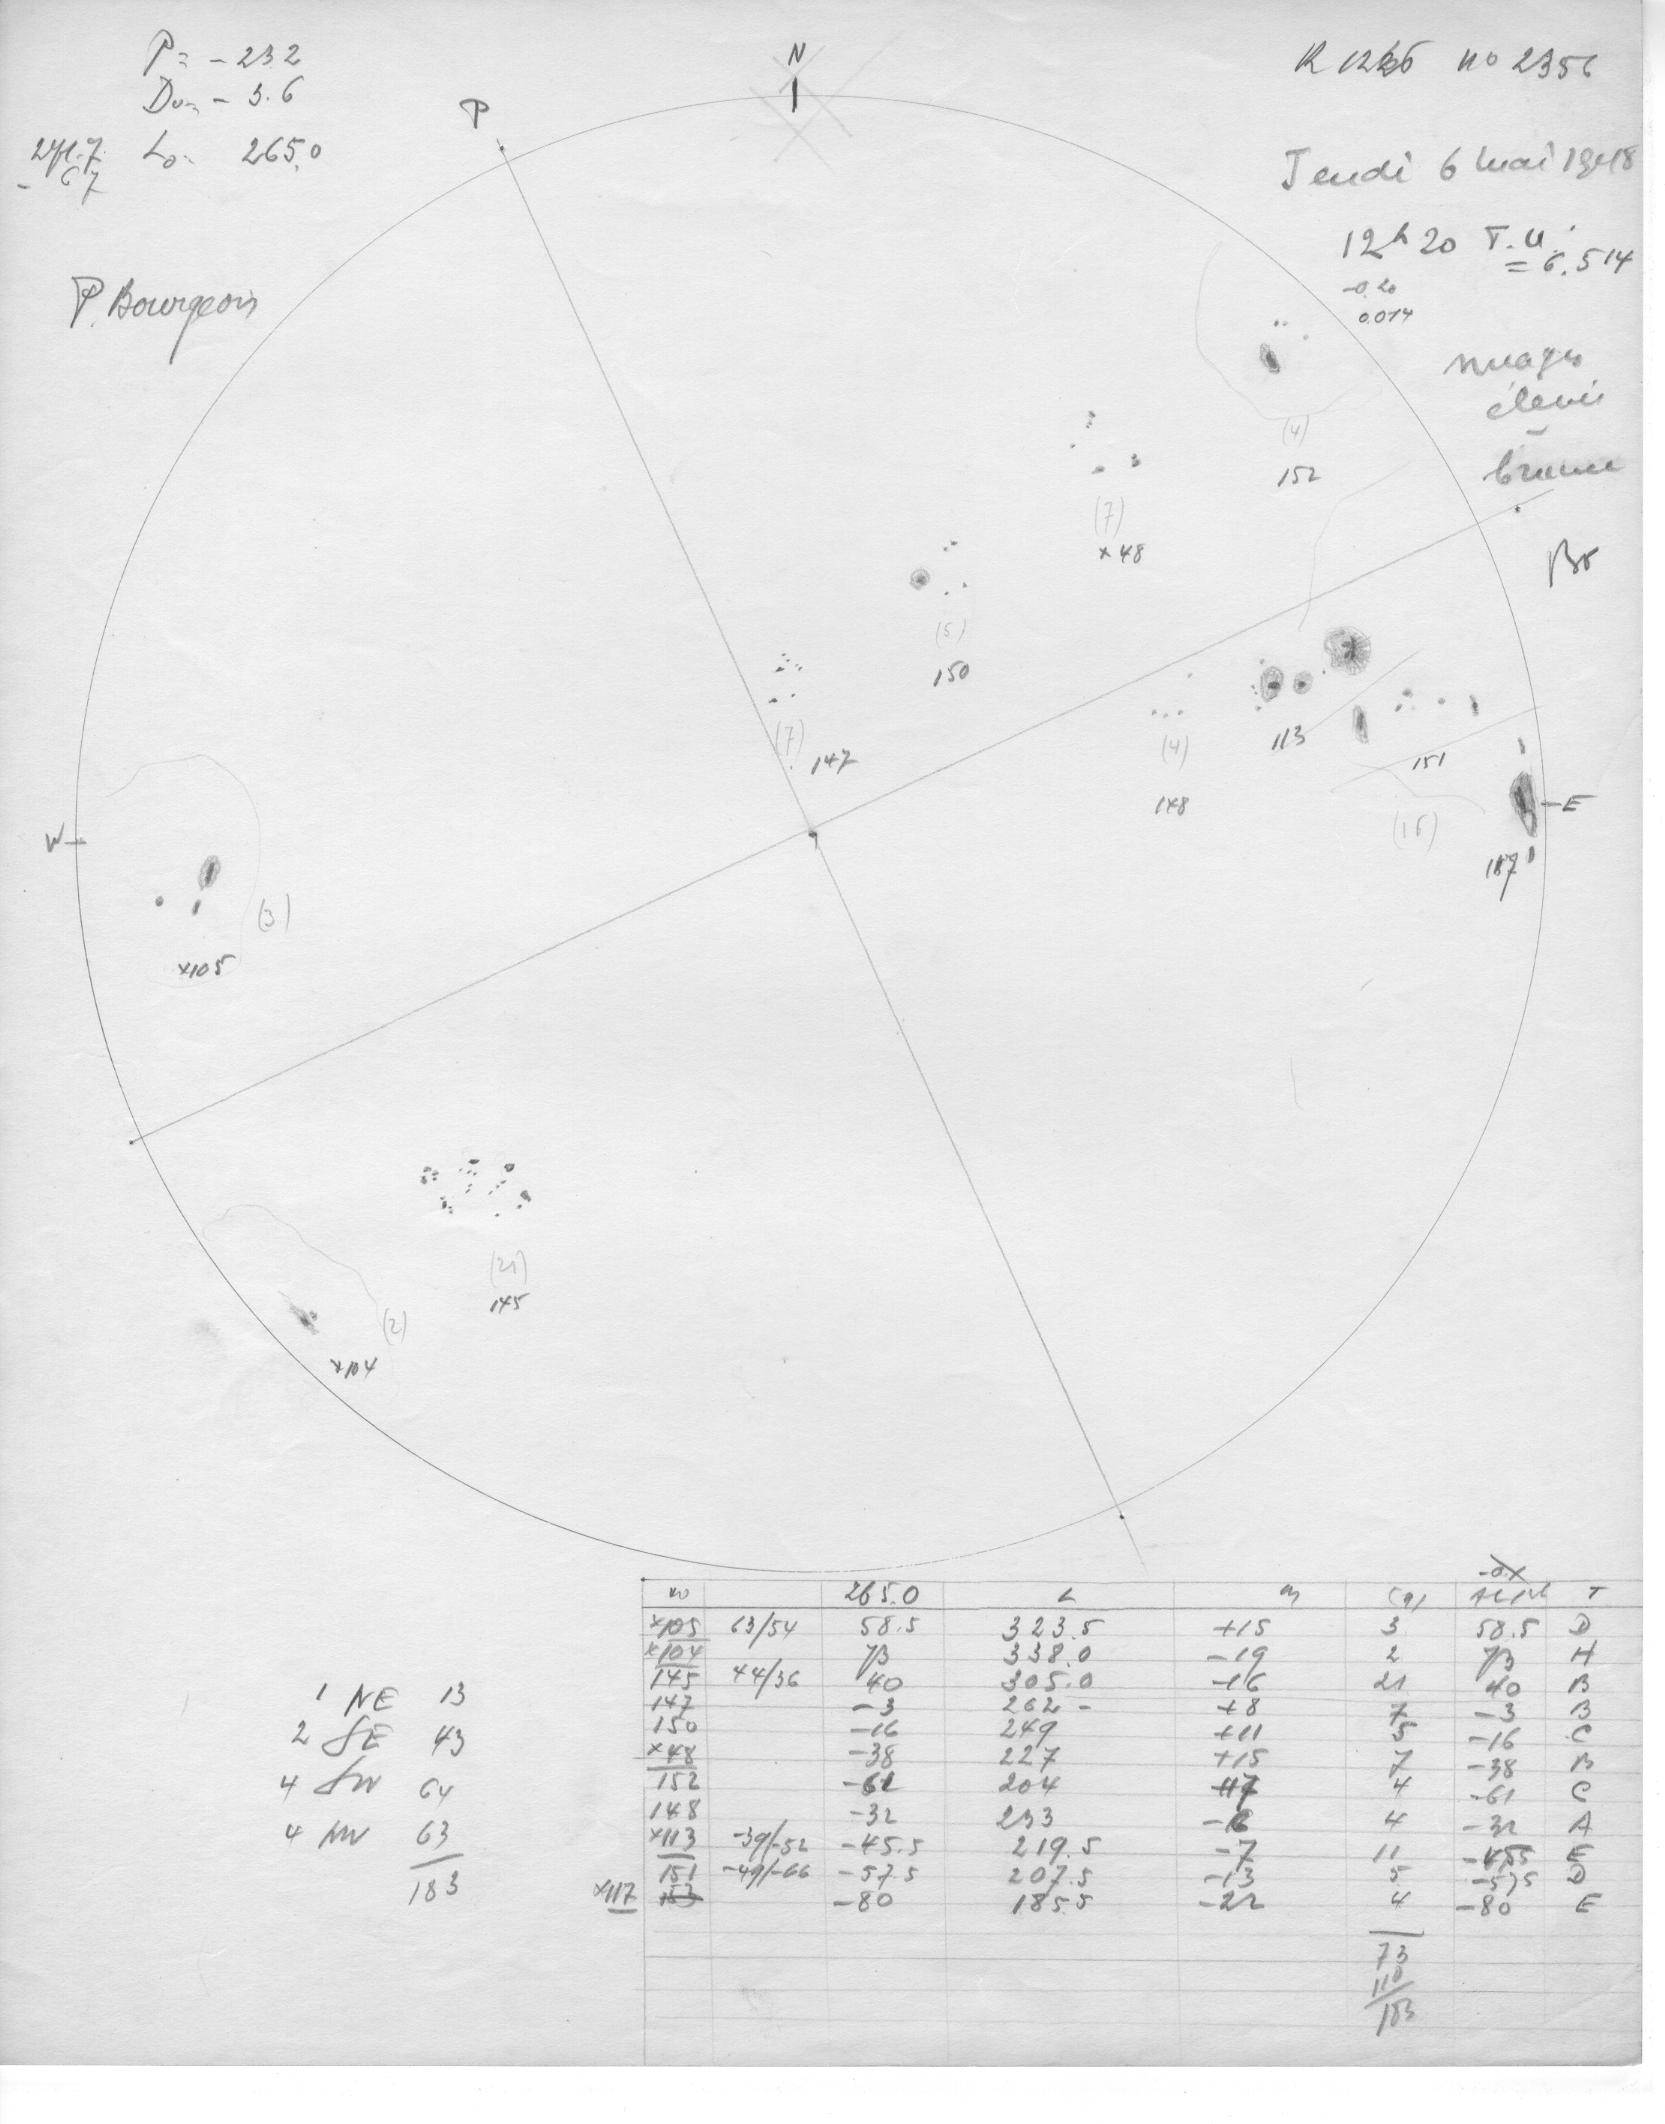 P = - 23.2
Do = - 3.6
Lo = 265.0
- 6.7
P. Bourgeois
P
N
no 2356
Jeudi 6 mai 1948
12h 20 T.U.
= 6.514
-0.20
0.014
nuages
élevés
-
brume
(4)
152
(7)
x 48
(5)
150
(7)
147
(4)
148
113
151
(16)
E
W
(3)
x105
(21)
145
(2)
x104
no 265.0 L (g) T
x105 63/54 58.5 323.5 +15 3 58.5 D
x104 73 338.0 -19 2 73 H
145 44/36 40 305.0 -16 21 40 B
147 -3 262 - +8 7 -3 B
150 -16 249 +11 5 -16 C
x48 -38 227 +15 7 -38 B
152 -61 204 +17 4 -61 C
148 -32 233 4 -32 A
x113 -39/-52 -45.5 219.5 -7 11 -45.5 E
151 -49/-66 -57.5 207.5 -13 5 -57.5 D
x117 153 -80 185.5 -22 4 -80 E
73
110
183
1 NE 13
2 SE 43
4 SW 64
4 NW 63
183